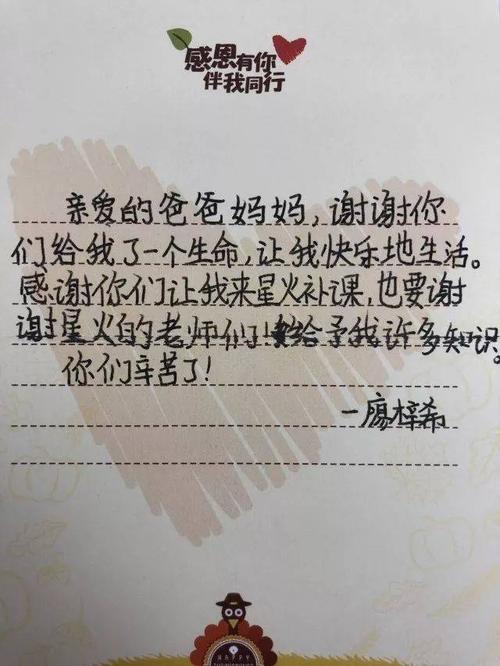 感恩有你
伴我同行
亲爱的爸爸妈妈，谢谢你
们给我了一个生命，让我快乐地生活。
感谢你们让我来星火补课，也要谢
谢星火的老师们！给予我许多知识。
你们辛苦了！
—廖梓希
HAPPY